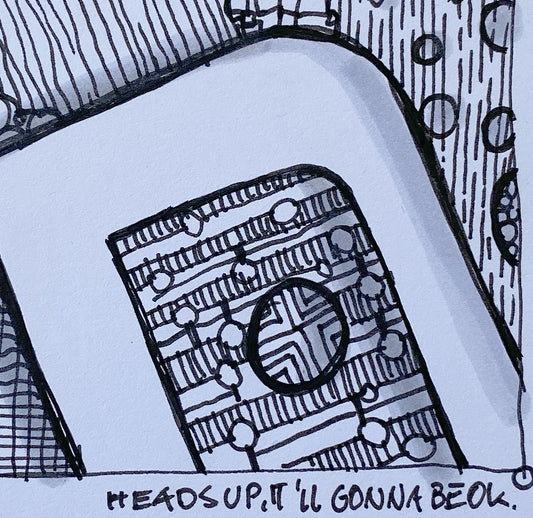 HEADS UP, IT'LL GONNA BE OK.